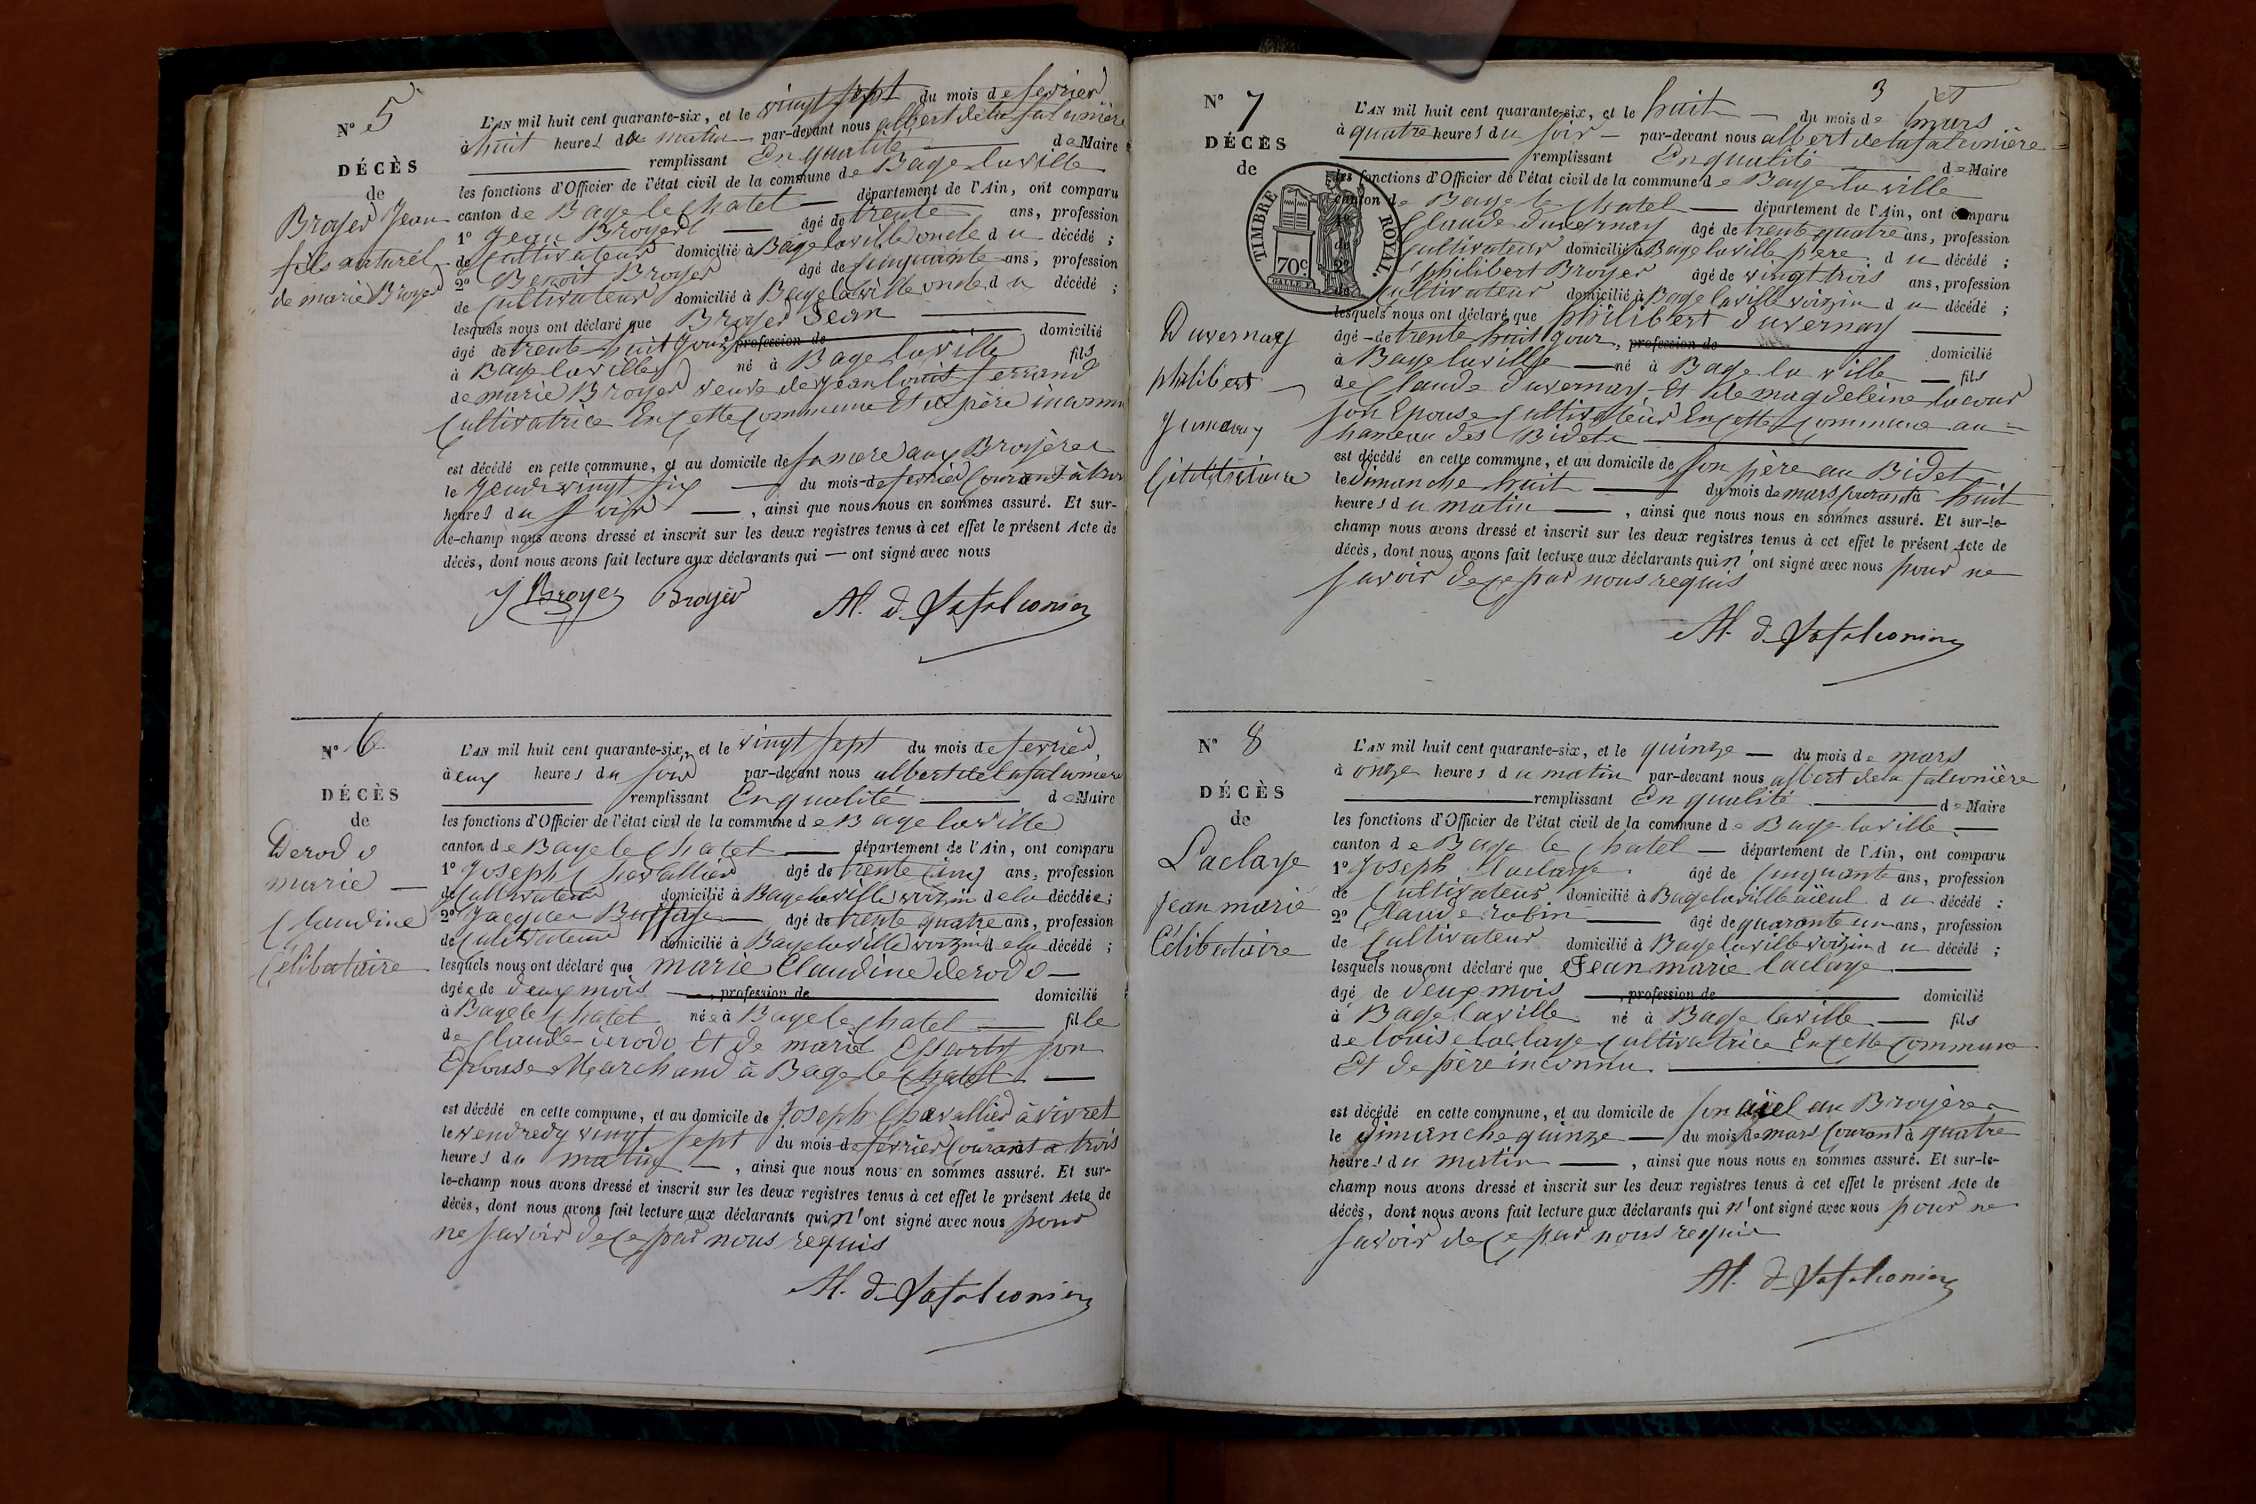 N° 5
DÉCÈS
de
Broyer Jean
fils naturel
de marie Broyer
L'AN mil huit cent quarante-six, et le vingt sept du mois de fevrier
à huit heures du matin par-devant nous albert de la falconière
remplissant En qualité de Maire
les fonctions d'Officier de l'état civil de la commune de Bage la ville
canton de Bage le chatel département de l'Ain, ont comparu
1° Jean Broyer âgé de trente ans, profession
de Cultivateur domicilié à Bage la ville oncle du décédé ;
2° Benoit Broyer âgé de cinquante ans, profession
de Cultivateur domicilié à Bage la ville oncle du décédé ;
lesquels nous ont déclaré que Broyer Jean
âgé de trente huit jours profession de domicilié
à Bage la ville né à Bage la ville fils
de marie Broyer veuve de Jean louis ferrand
Cultivatrice En Cette Commune Et de père inconnu
est décédé en cette commune, et au domicile de sa mere aux Broyères
le Jeudi vingt six du mois de fevrier Courant à trois
heures du soir , ainsi que nous nous en sommes assuré. Et sur-
le-champ nous avons dressé et inscrit sur les deux registres tenus à cet effet le présent Acte de
décès, dont nous avons fait lecture aux déclarants qui — ont signé avec nous
J Broyer Broyer Al. de Lafalconière
N° 6
DÉCÈS
de
Derodo
marie
Claudine
Célibataire
L'AN mil huit cent quarante-six, et le vingt sept du mois de fevrier
à heures du soir par-devant nous albert de la falconiere
remplissant En qualité de Maire
les fonctions d'Officier de l'état civil de la commune de Bage la ville
canton de Bage le Chatel département de l'Ain, ont comparu
1° Joseph Chavallier âgé de trente cinq ans, profession
de Cultivateur domicilié à Bage la ville voizin de la décédée ;
2° Jacques Buffaye âgé de trente quatre ans, profession
de Cultivateur domicilié à Bage la ville voizin de la décédé ;
lesquels nous ont déclaré que marie Claudine derodo
âgée de deux mois , profession de domicilié
à Bage le Chatel née à Bage le chatel fille
de Claude derodo Et de marie Essarty son
Epouse Marchand à Bage le Chatel
est décédé en cette commune, et au domicile de Joseph Chavallier à vivret
le vendredy vingt sept du mois de fevrier Courant à trois
heures du matin , ainsi que nous nous en sommes assuré. Et sur-
le-champ nous avons dressé et inscrit sur les deux registres tenus à cet effet le présent Acte de
décès, dont nous avons fait lecture aux déclarants qui n'ont signé avec nous pour
ne savoir de ce par nous requis
Al. de Lafalconière
3
N° 7
DÉCÈS
de
TIMBRE ROYAL.
70c
Duvernay
philibert
Jumeau
Célibataire
L'AN mil huit cent quarante-six, et le huit du mois de mars
à quatre heures du soir par-devant nous albert de la falconière
remplissant En qualité de Maire
les fonctions d'Officier de l'état civil de la commune de Bage la ville
canton de Bage le chatel département de l'Ain, ont comparu
Claude duvernay âgé de trente quatre ans, profession
Cultivateur domicilié à Bage la ville père du décédé ;
2° philibert Broyer âgé de vingt trois ans, profession
Cultivateur domicilié à Bage la ville voizin du décédé ;
lesquels nous ont déclaré que philibert duvernay
âgé de trente huit jour, profession de domicilié
à Bage la ville né à Bage la ville fils
de Claude duvernay Et de magdeleine lacour
son Epouse Cultivateur En Cette Commune au
hameau des Bidets
est décédé en cette commune, et au domicile de son père au Bidet
le dimanche huit du mois de mars Courant à huit
heures du matin , ainsi que nous nous en sommes assuré. Et sur-le-
champ nous avons dressé et inscrit sur les deux registres tenus à cet effet le présent Acte de
décès, dont nous avons fait lecture aux déclarants qui n'ont signé avec nous pour ne
savoir de ce par nous requis
Al. de Lafalconière
N° 8
DÉCÈS
de
Laclaye
Jean marie
Célibataire
L'AN mil huit cent quarante-six, et le quinze du mois de mars
à onze heures du matin par-devant nous albert de la falconière
remplissant En qualité de Maire
les fonctions d'Officier de l'état civil de la commune de Bage la ville
canton de Bage le chatel département de l'Ain, ont comparu
1° Joseph laclaye âgé de cinquante ans, profession
de Cultivateur domicilié à Bage la ville aïeul du décédé :
2° Claude robin âgé de quarante un ans, profession
de Cultivateur domicilié à Bage la ville voizin du décédé ;
lesquels nous ont déclaré que Jean marie laclaye
âgé de deux mois , profession de domicilié
à Bage la ville né à Bage la ville fils
de louise laclaye Cultivatrice En Cette Commune
Et de père inconnu
est décédé en cette commune, et au domicile de son aïel au Broyères
le dimanche quinze du mois de mars Courant à quatre
heures du matin , ainsi que nous nous en sommes assuré. Et sur-le-
champ nous avons dressé et inscrit sur les deux registres tenus à cet effet le présent Acte de
décès, dont nous avons fait lecture aux déclarants qui n'ont signé avec nous pour ne
savoir de ce par nous requis
Al. de Lafalconière